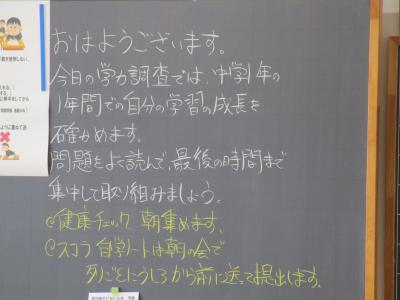 おはようございます。
今日の学力調査では、中学1年の
1年間での自分の学習の成長を
確かめます。
問題をよく読んで、最後の時間まで
集中して取り組みましょう。
健康チェック 朝集めます。
スコラ、自学ノートは朝の会で
列ごとにうしろから前に送って提出します。